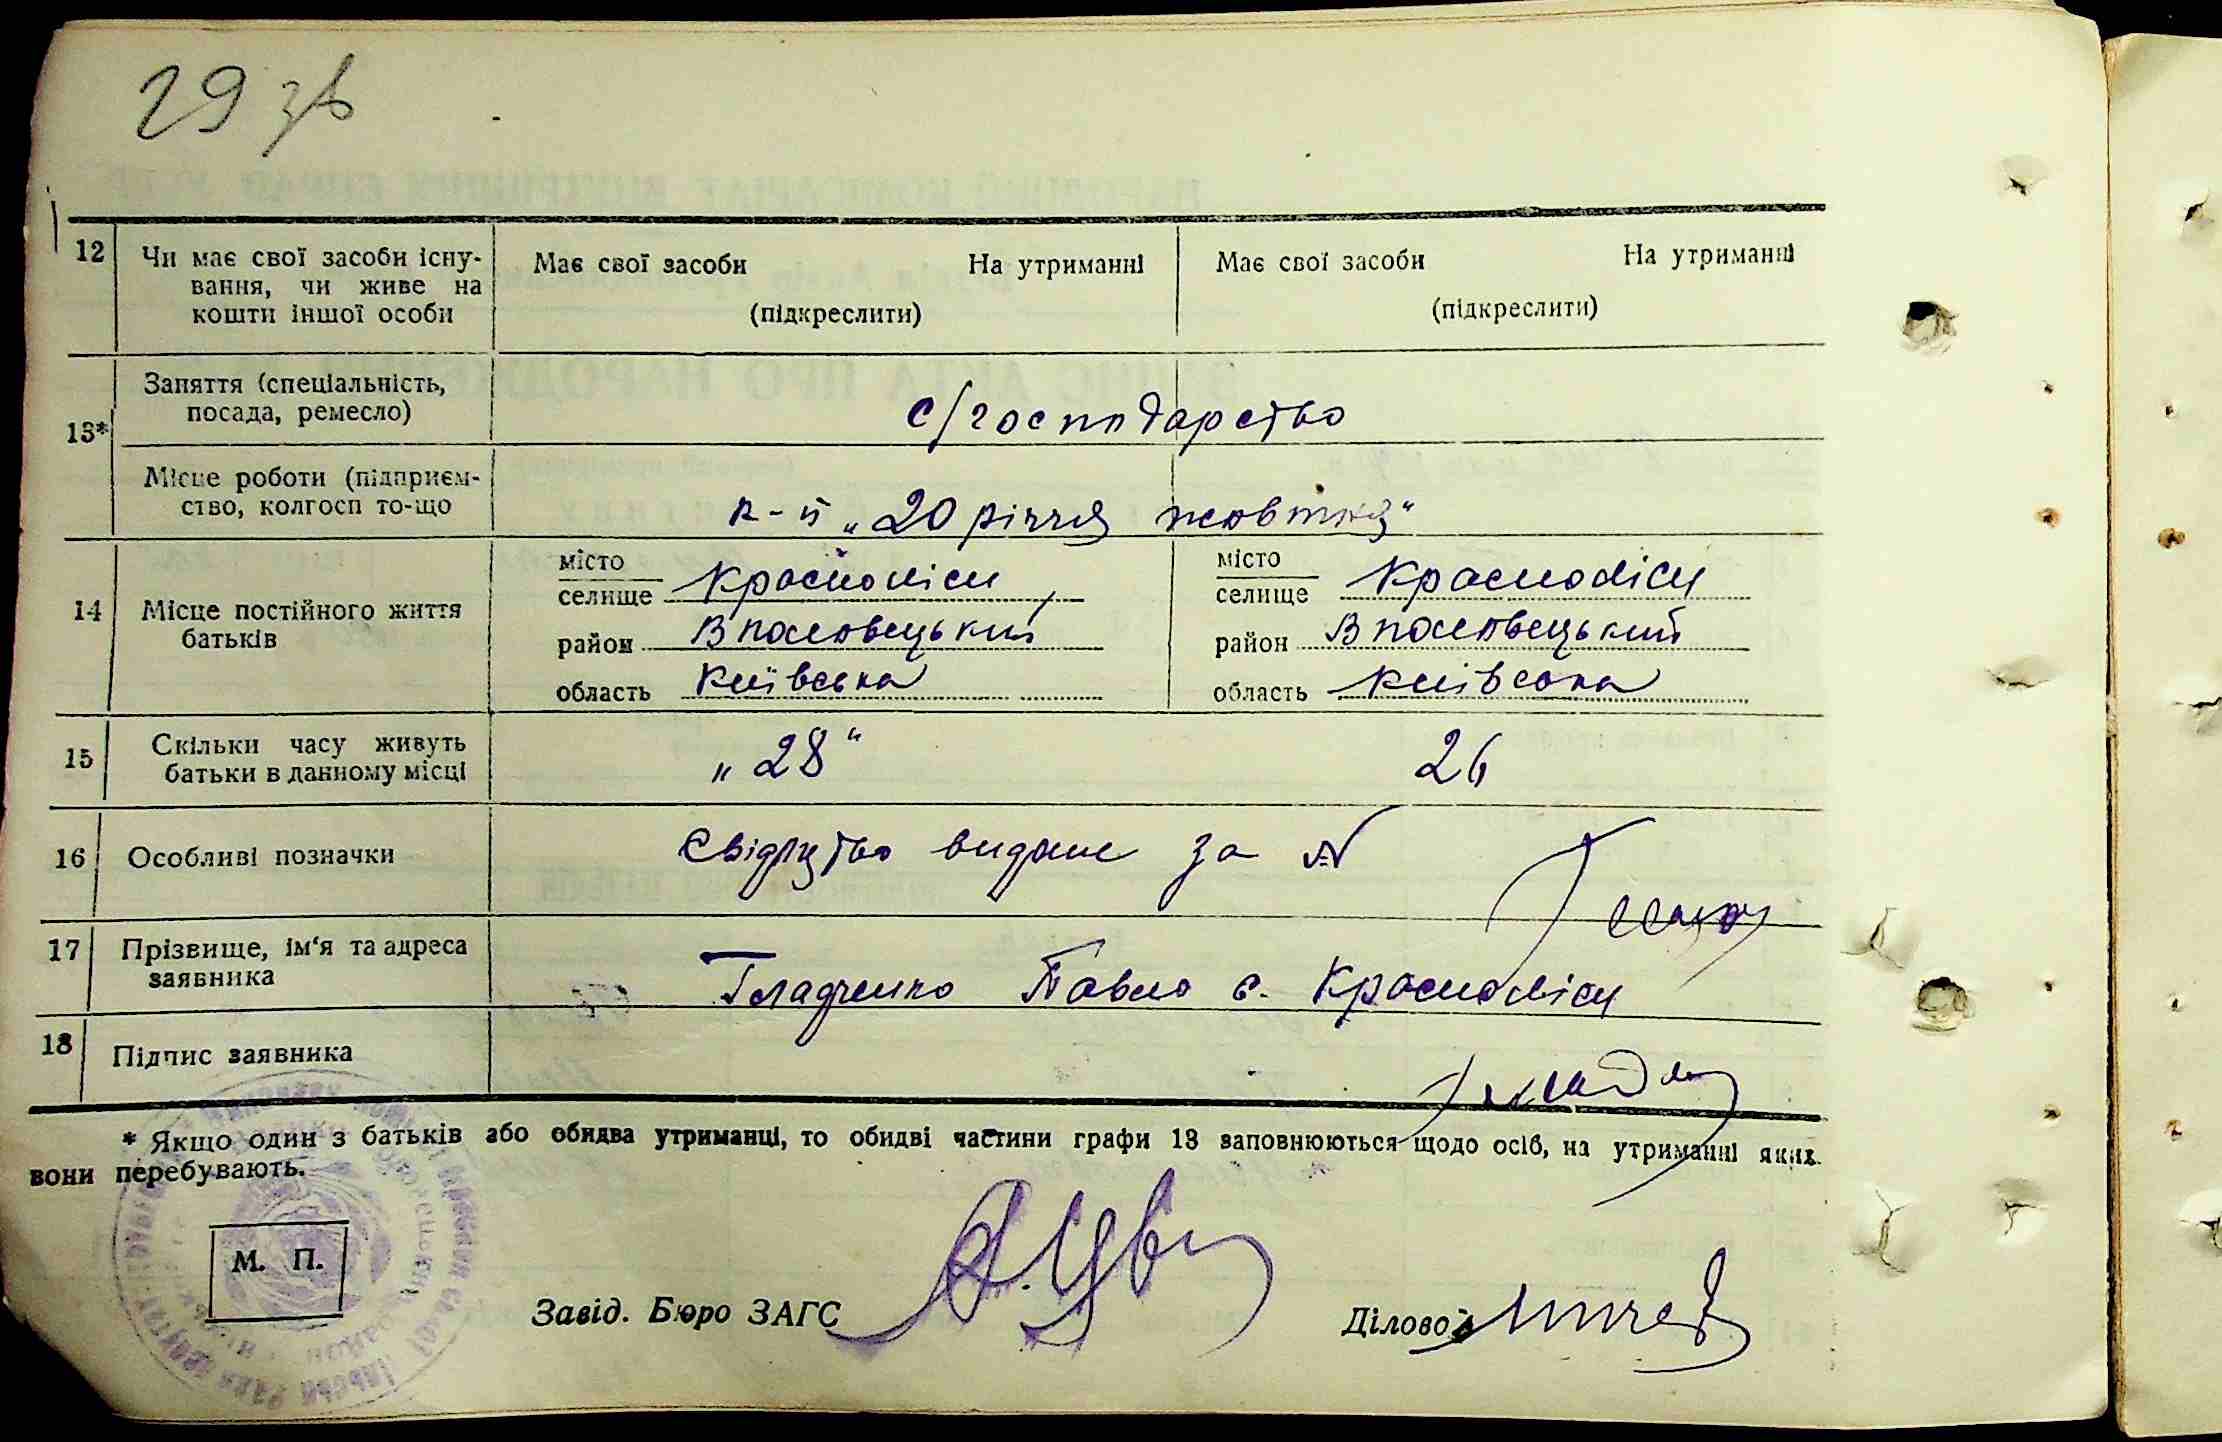 29 зв
12
Чи має свої засоби існу-
вання, чи живе на
кошти іншої особи
Має свої засоби На утриманні
(підкреслити)
Має свої засоби На утриманні
(підкреслити)
13*
Заняття (спеціальність,
посада, ремесло)
с/господарство
Місце роботи (підприєм-
ство, колгосп то-що
к-п „20 річчя жовтня“
14
Місце постійного життя
батьків
місто
селище Красноліси
район В половецький
область Київська
місто
селище Красноліси
район В половецький
область Київська
15
Скільки часу живуть
батьки в данному місці
„28“ 26
16
Особливі позначки
Свідоцтво видане за №
17
Прізвище, ім‘я та адреса
заявника
Гладченко Павло с. Красноліси
18
Підпис заявника
* Якщо один з батьків або обидва утриманці, то обидві частини графи 13 заповнюються щодо осіб, на утриманні яких
вони перебувають.
М. П.
Завід. Бюро ЗАГС
Діловод